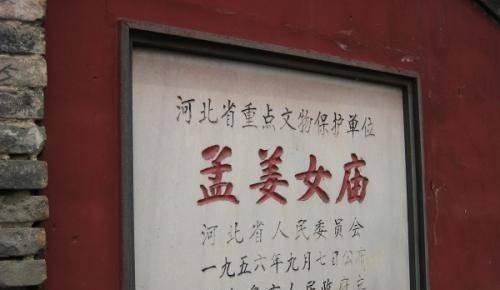 河北省重点文物保护单位
孟姜女庙
河北省人民委员会
一九五六年九月七日公布
人民政府立